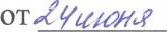 от 24 июня